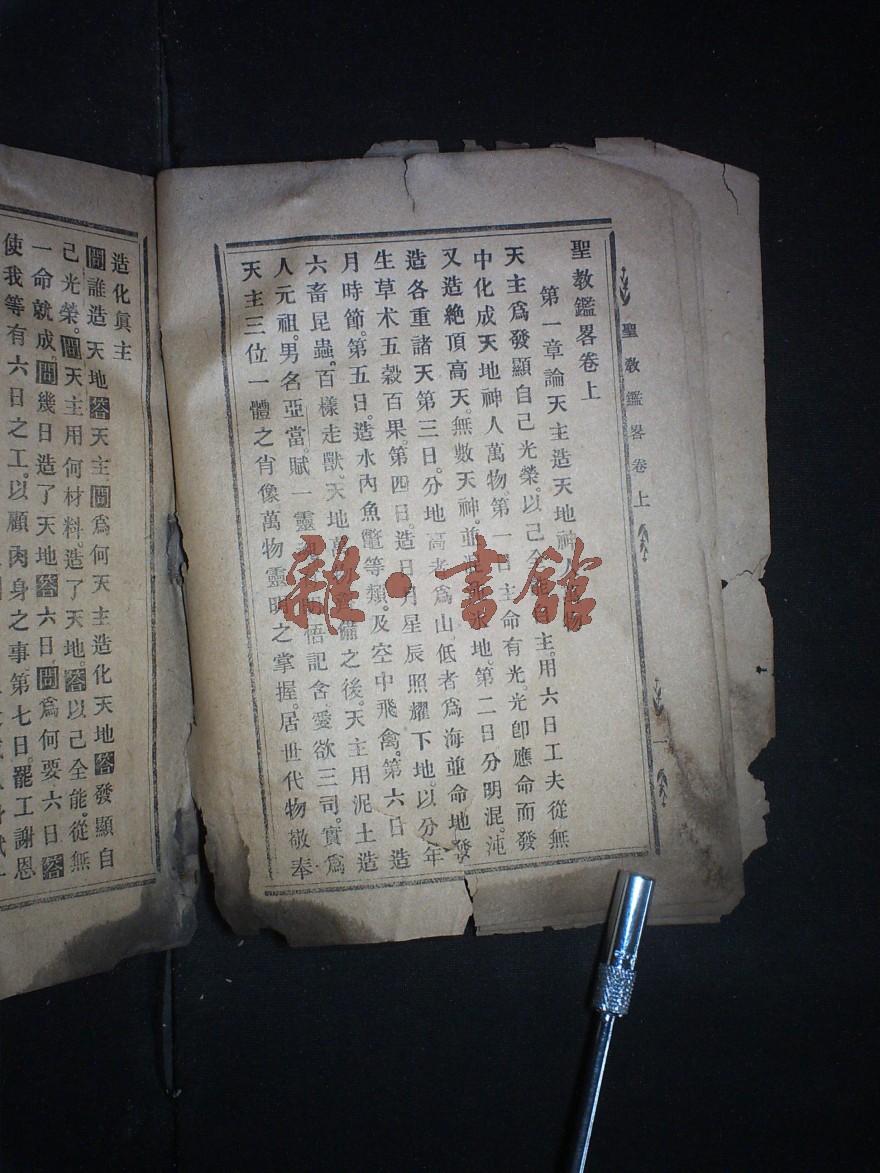 聖教鑑畧卷上
一
聖教鑑畧卷上
第一章論天主造天地神人萬物
天主爲發顯自己光榮。以己全能自主。用六日工夫從無
中化成天地神人萬物。第一日主命有光。光卽應命而發
又造絶頂高天。無數天神。並混沌水地。第二日分明混。沌
造各重諸天第三日。分地高者爲山。低者爲海並命地發
生草木五穀百果。第四日。造日月星辰照耀下地。以分年
月時節。第五日。造水內魚鼈等類。及空中飛禽。第六日造
六畜昆蟲。百樣走獸。天地 備之後。天主用泥土造
人元祖。男名亞當。賦一靈 明悟記含。愛欲三司。實爲
天主三位一體之肖像萬物靈明之掌握。居世代物敬奉
造化眞主
問誰造天地答天主問爲何天主造化天地答發顯自
己光榮。問天主用何材料。造了天地。答以己全能。從無
一命就成。問幾日造了天地答六日。問爲何要六日答
使我等有六日之工。以顧肉身之事。第七日。罷工謝恩
雜·書館